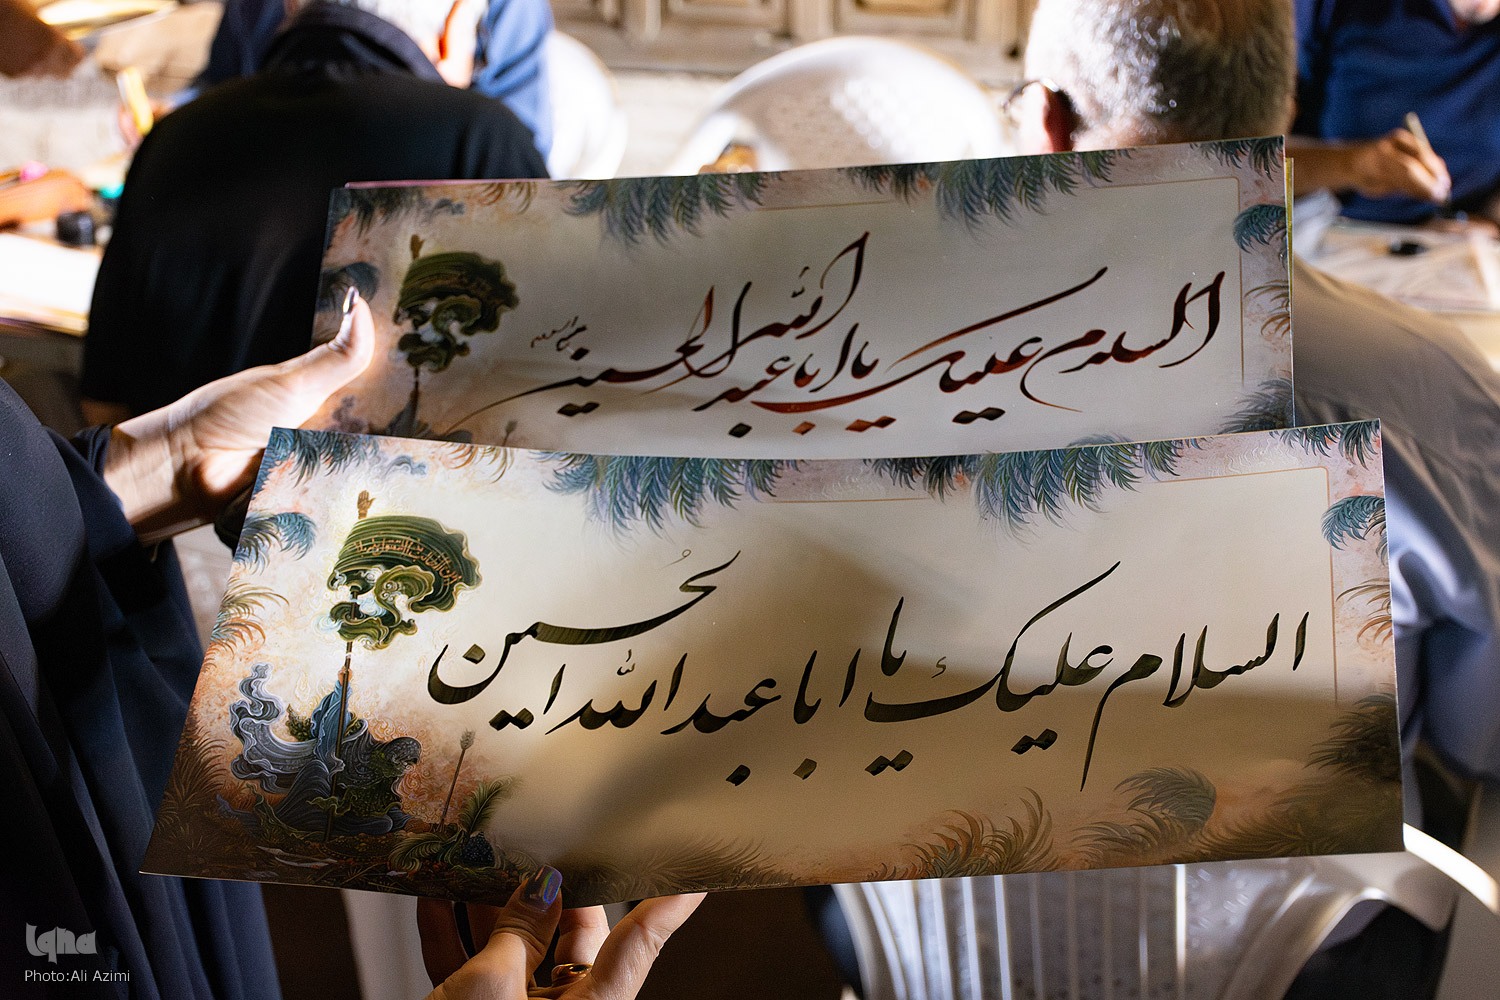 السلام علیک یا ابا عبد الله الحسین
السلام علیک یا ابا عبد الله الحسین
iqna
Photo:Ali Azimi